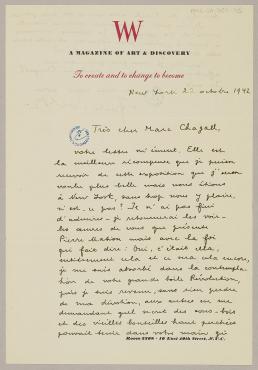 W
A MAGAZINE OF ART & DISCOVERY
To create and to change to become
New York 22 octobre 1942
Très cher Marc Chagall,
votre lettre m'émeut. Elle est
la meilleure récompense que je puisse
recevoir de cette exposition que j'aurai
voulu plus belle mais nous étions
à New York, sans trop nous y plaire,
n'est-ce pas? Je n'ai pas fini
d'admirer - je retournerai les voir -
les œuvres de vous que présente
Pierre Matisse mais avec la foi
qui fait dire : Oui, c'était cela,
entièrement cela et ce sera cela encore,
je me suis absorbé dans la contempla-
tion de votre grande toile Révolution,
puis je suis revenu, sans rien perdre
de ma dévotion, aux autres en me
demandant quel secret des
et des vieilles bouteilles haut perchées
pouvait tenir dans votre main qui
Room 1208 · 10 East 49th Street, N.Y.C.